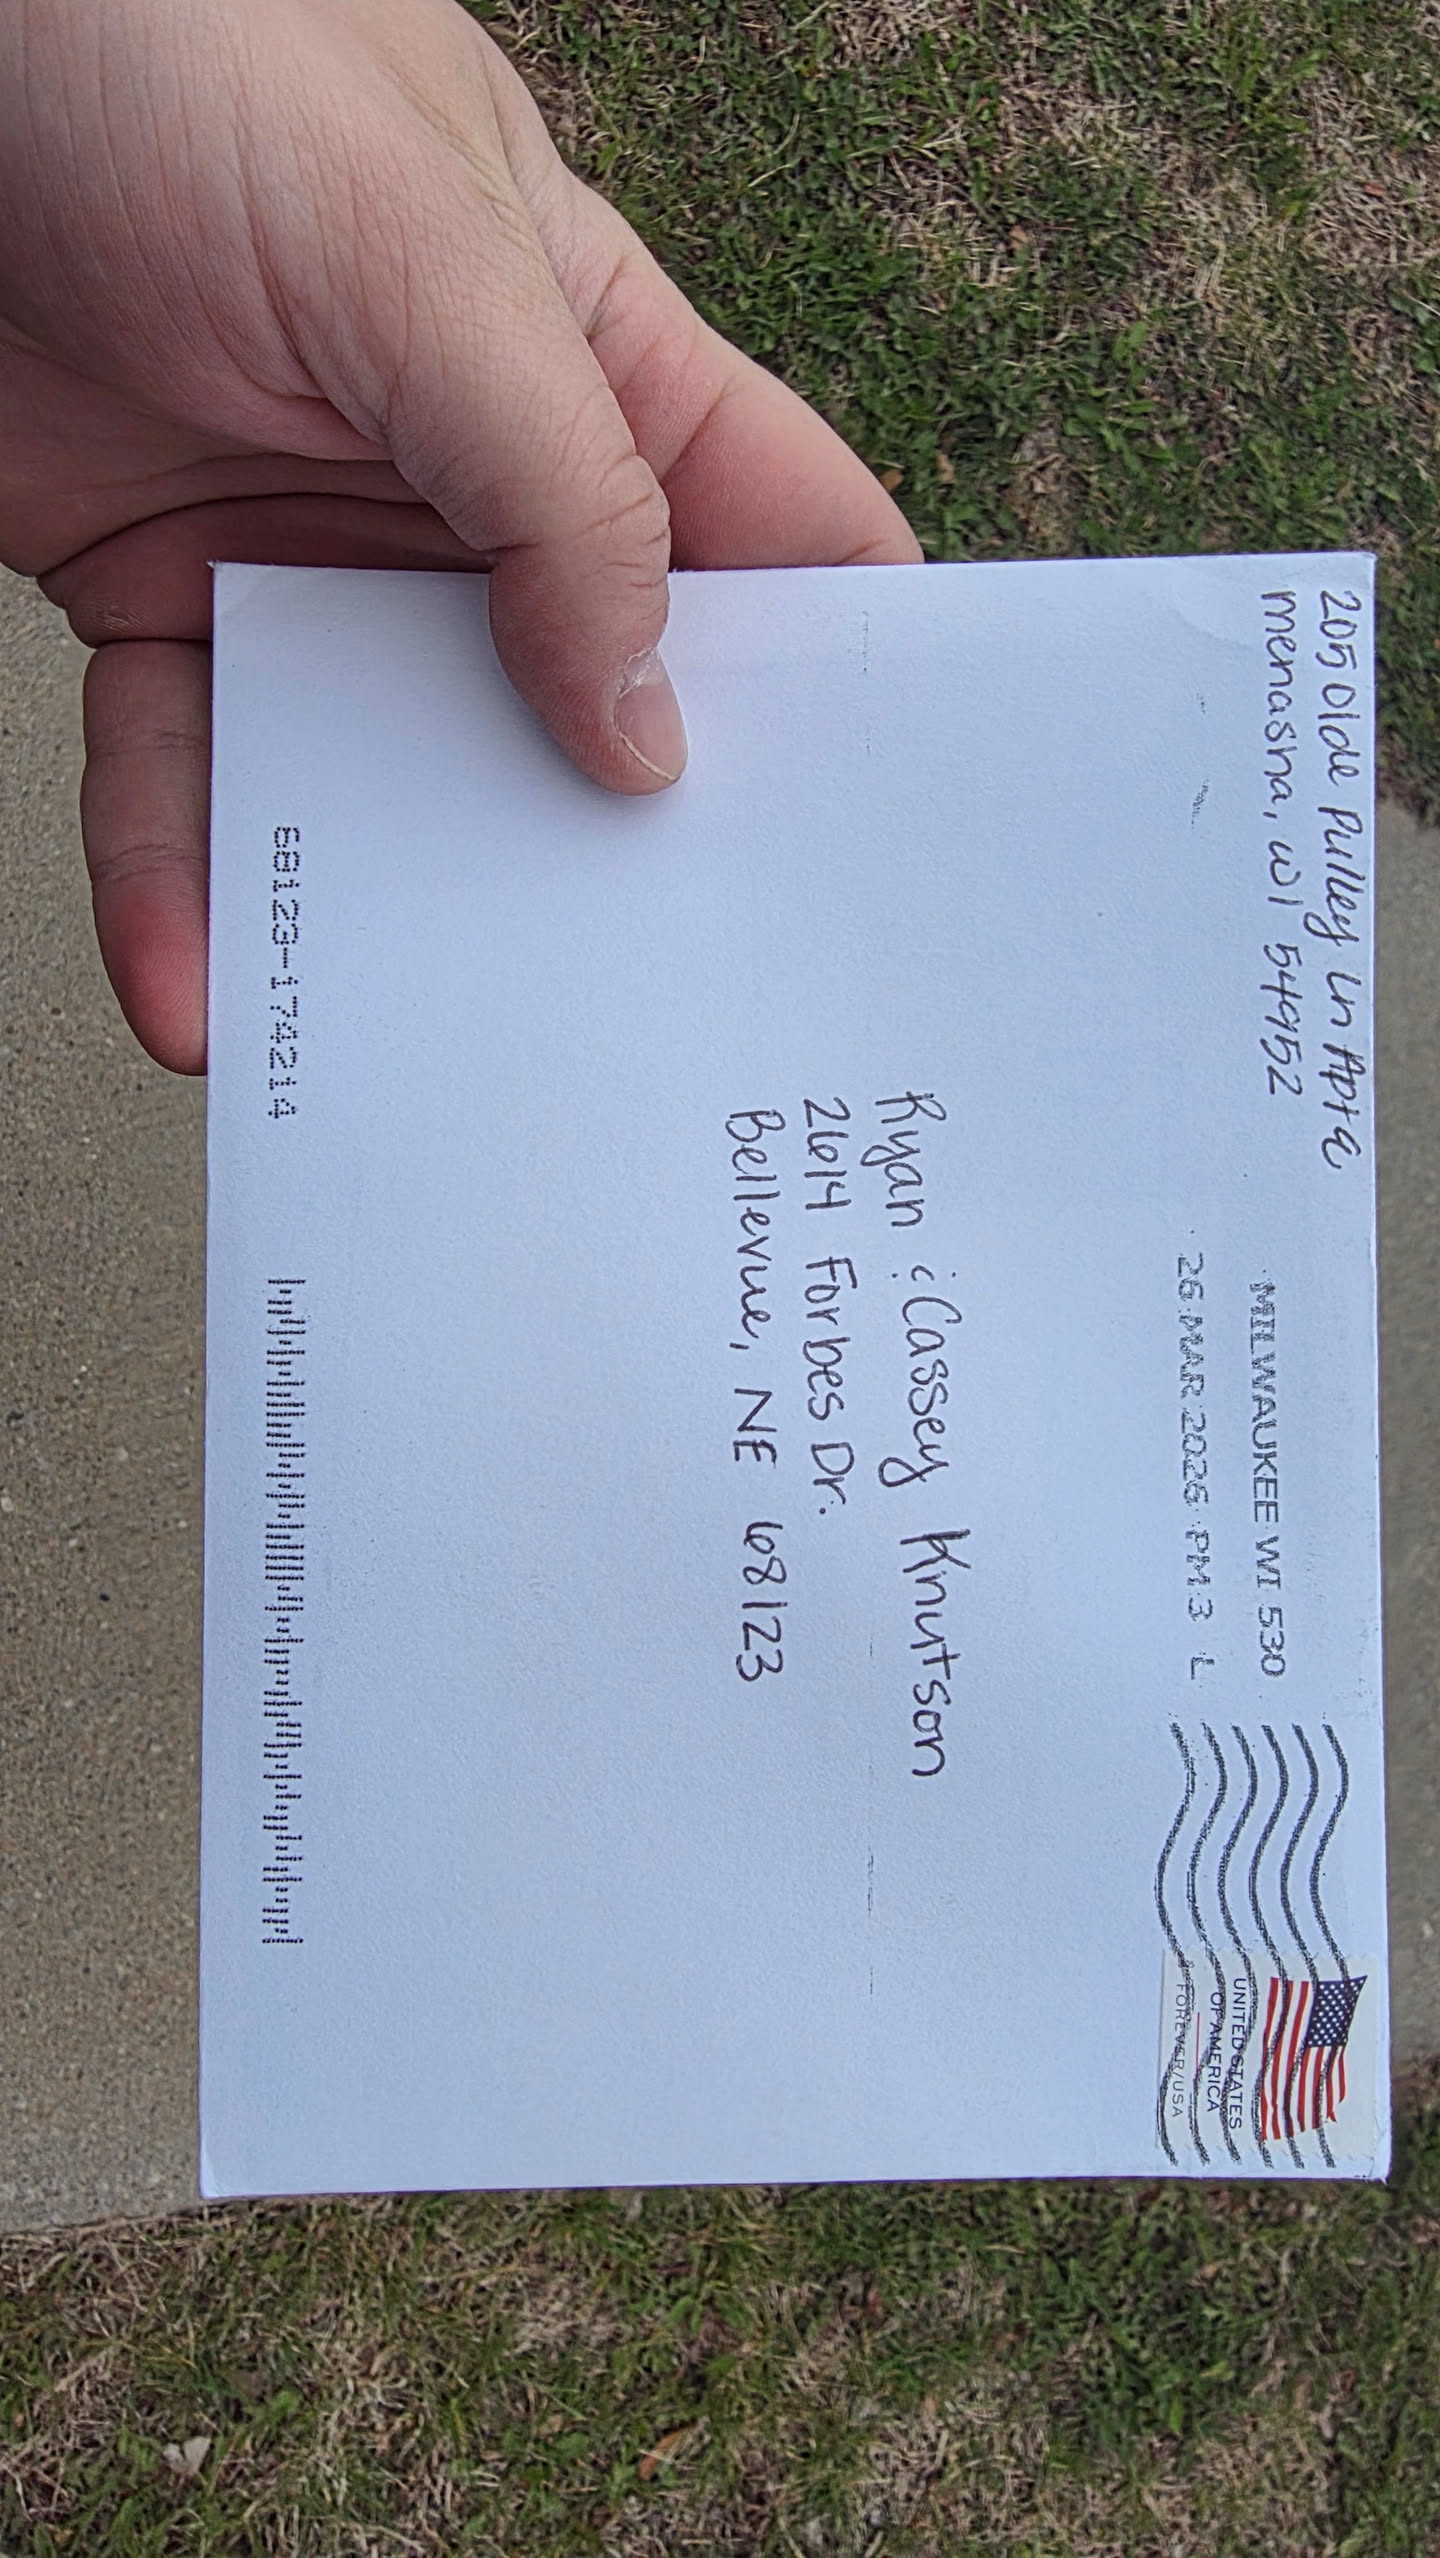 205 Olde Pulley Ln Apt 9
Menasha, WI 54952
MILWAUKEE WI 530
26 MAR 2026 PM 3 L
UNITED STATES
OF AMERICA
FOREVER/USA
Ryan & Cassey Knutson
2614 Forbes Dr.
Bellevue, NE 68123
68123-174214